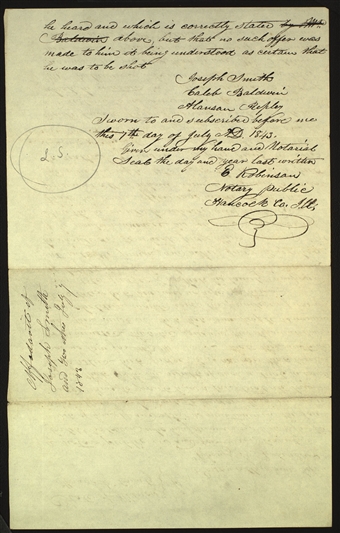 he heard and which is correctly stated by Mr.
Baldwin above, but that no such offer was
made to him it being understood as certain that
he was to be shot
Joseph Smith
Caleb Baldwin
Alanson Ripley
Sworn to and subscribed before me
this 7th day of July AD. 1843.
Given under my hand and Notarial
Seal the day and year last written
E Robinson
Notary Public
Hancock Co. Ills.
L. S.
Affidavit of
Joseph Smith
and two others July 7
1843